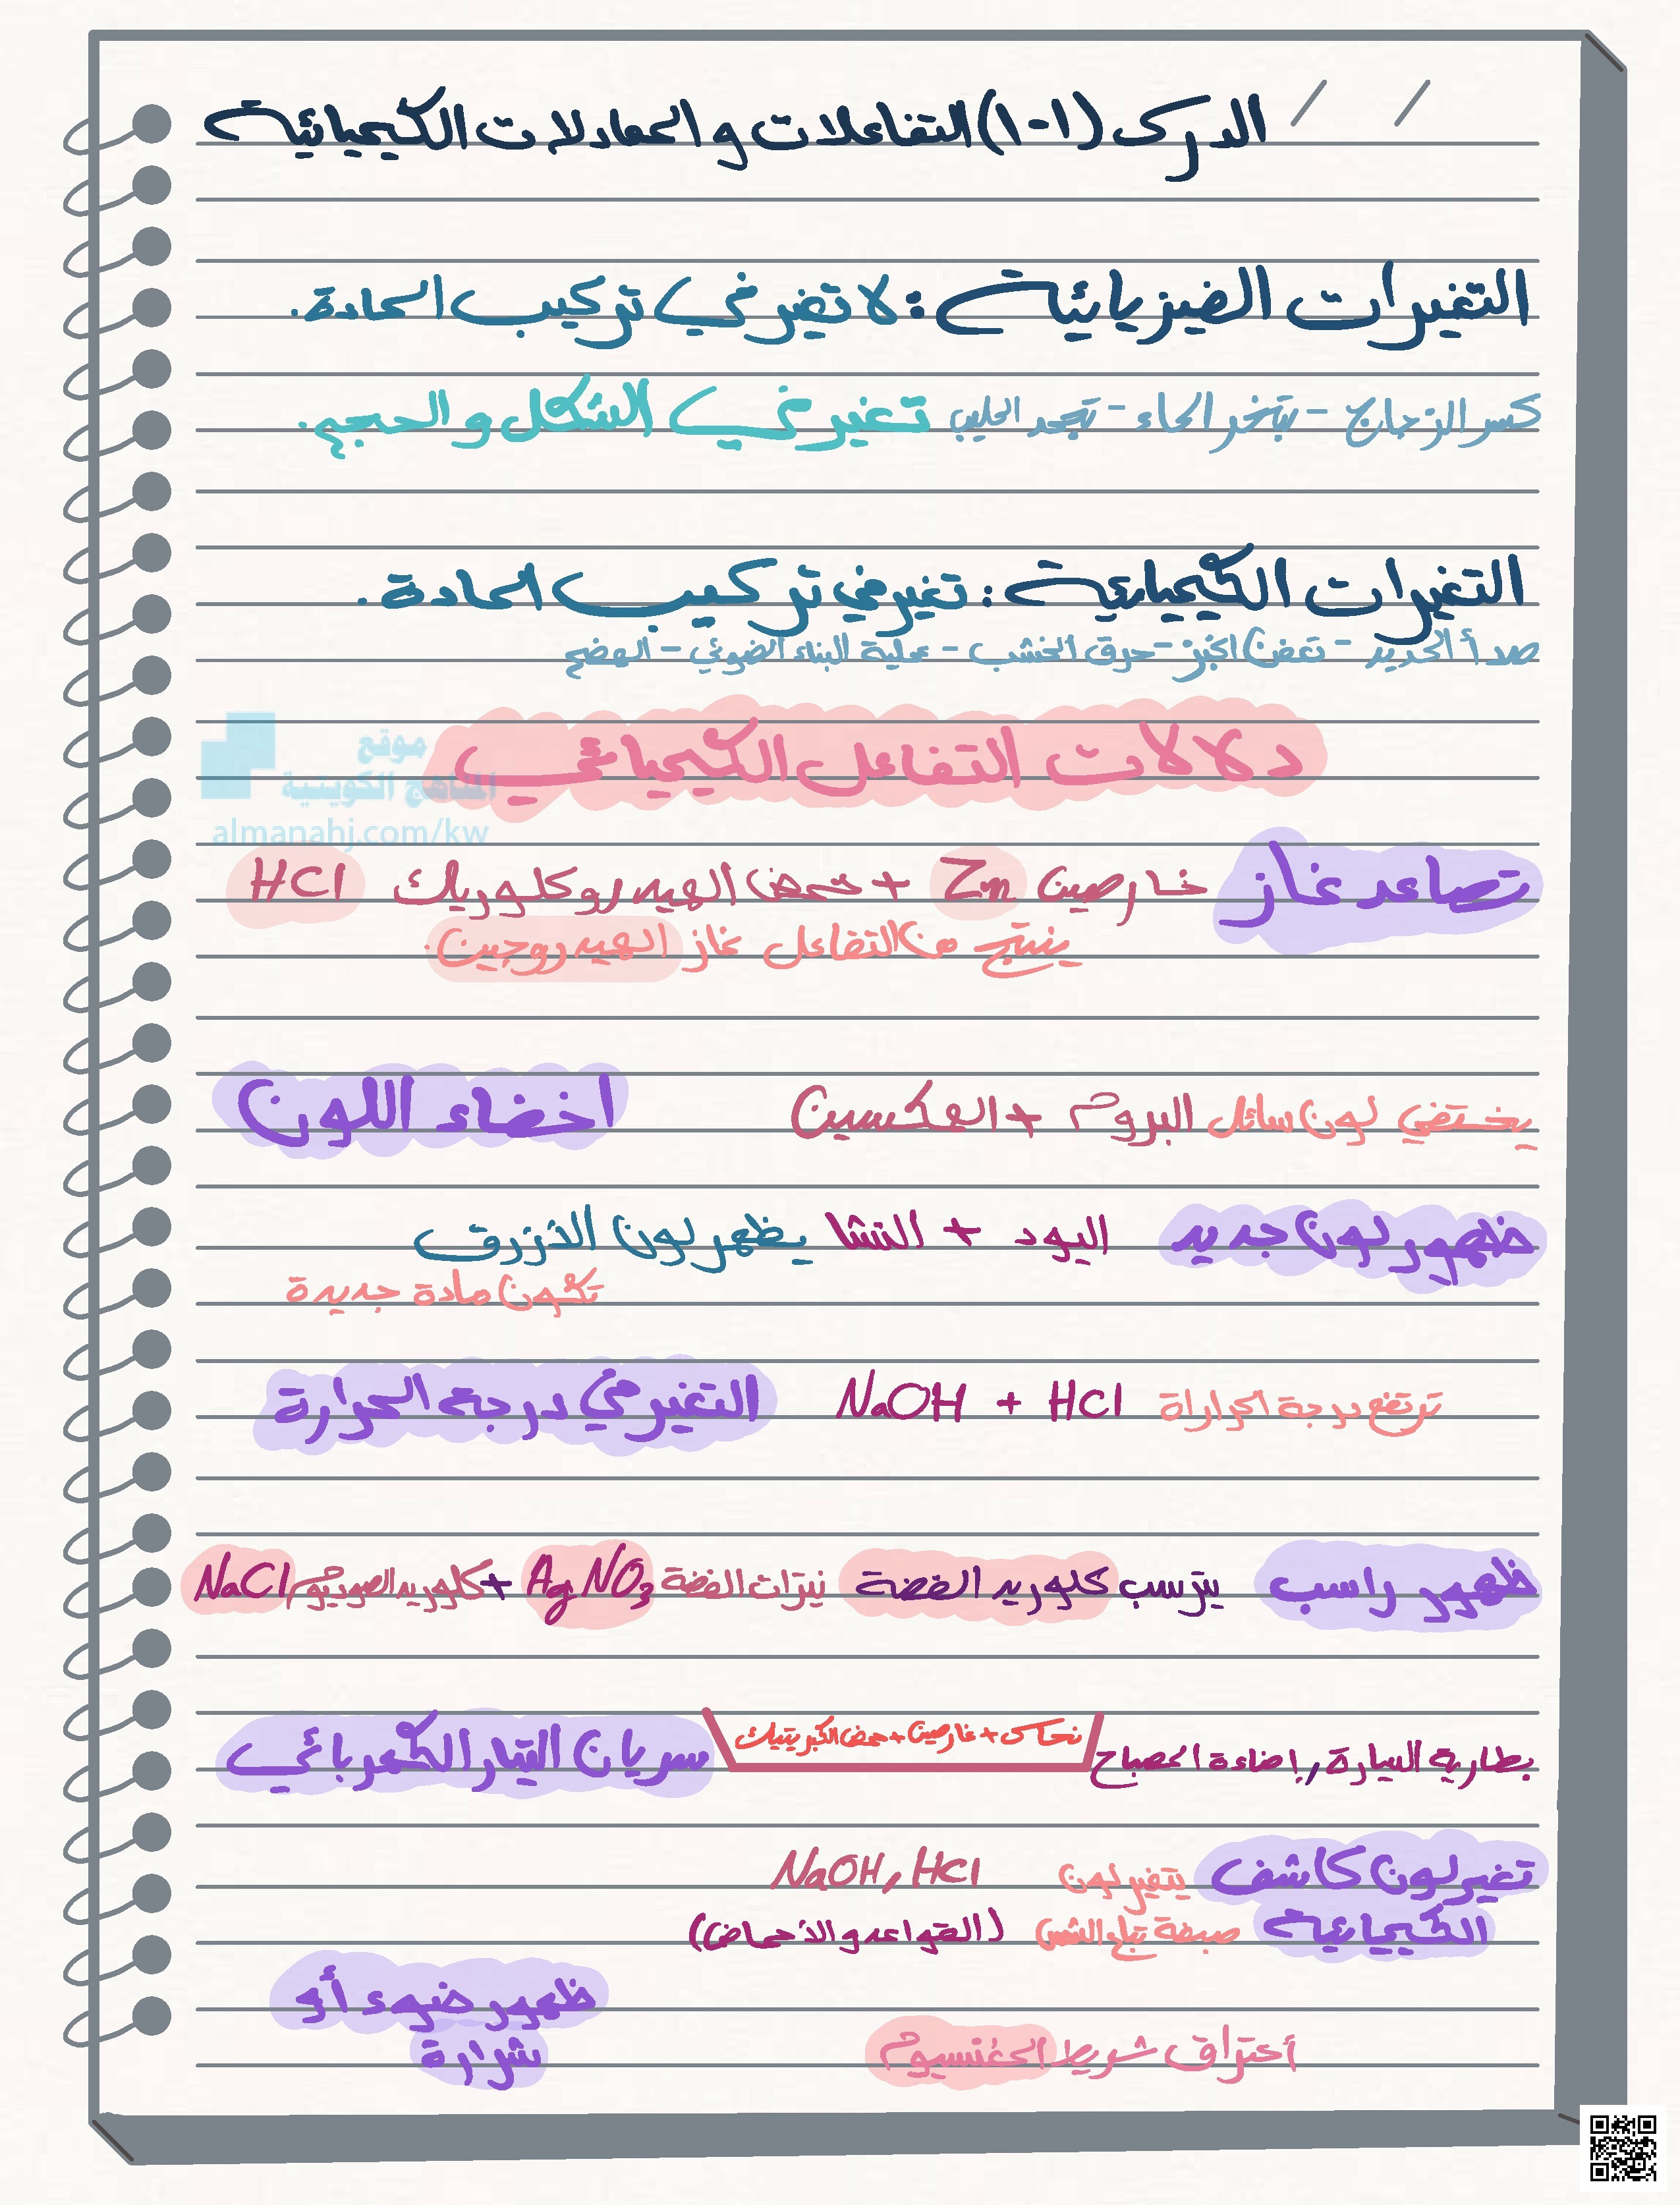 الدرس (١-١) التفاعلات و المعادلات الكيميائية
التغيرات الفيزيائية : لا تغير في تركيب المادة.
كسر الزجاج - تبخر الماء - تجمد الحليب تغير في الشكل و الحجم.
التغيرات الكيميائية : تغير في تركيب المادة.
صدأ الحديد - تعفن الخبز - حرق الخشب - عملية البناء الضوئي - الهضم
دلالات التفاعل الكيميائي
موقع
المناهج الكويتية
almanahj.com/kw
تصاعد غاز خارصين Zn + حمض الهيدروكلوريك HCl
ينتج من التفاعل غاز الهيدروجين.
يختفي لون سائل البروم + الهكسين اخفاء اللون
ظهور لون جديد اليود + النشا يظهر لون الأزرق
تكون مادة جديدة
ترتفع درجة الحراراة NaOH + HCl التغير في درجة الحرارة
ظهور راسب يترسب كلوريد الفضة نيترات الفضة AgNO3 + كلوريد الصوديوم NaCl
بطارية السيارة , إضاءة المصباح نحاس + خارصين + حمض الكبريتيك سريان التيار الكهربائي
تغير لون كاشف يتغير لون NaOH , HCl
الكيميائية صبغة تباع الشمس (القواعد و الأحماض)
ظهور ضوء أو
شرارة
أحتراق شريط المغنسيوم